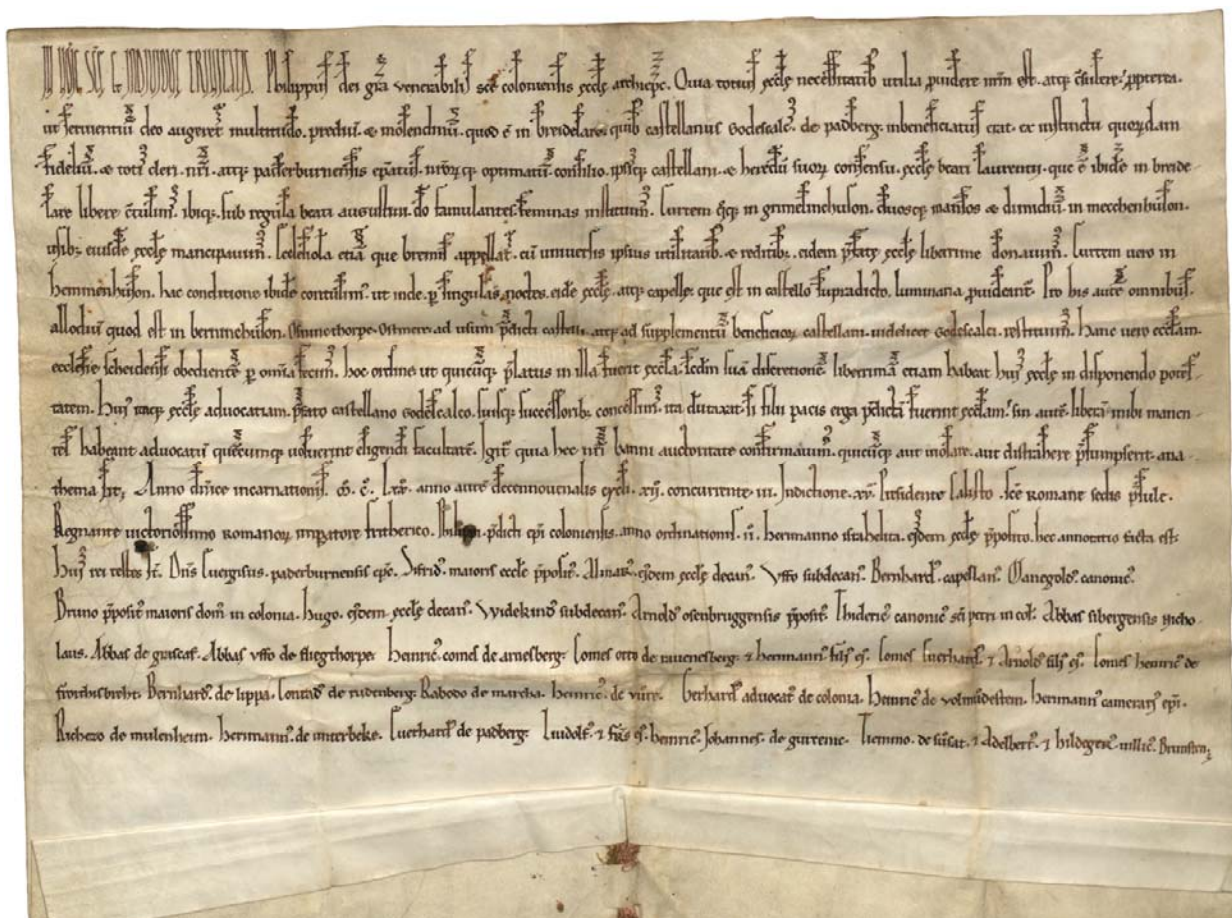 IN NOIE SCE & INDIVIDUE TRINITATIS. Philippus dei gra venerabilis sce coloniensis eccle archiepc. Quia totius eccle necessitatib utilia pvidere nrm est. atq; csulere. ppterea.
ut servientiu deo augeret multitudo. prediu. & molendinu. quod e in breidelare. quib castellanus Godescalc. de padberg. inbeneficiatus erat. ex instinctu quordam
fideliu. & toti cleri. nri. atq; paderburnensis epatus. nrorq; optimatu. consilio. ipsiq; castellani. & heredu suor consensu. eccle beati laurentii. que e ibide in breide-
lare libere ctulim. ibiq; sub regula beati augustini. do famulantes. feminas instituim. Curtem q;q; in grimelinchuson. duosq; mansos & dimidiu. in mecchenhuson.
usib; eiusde eccle mancipavim. Ecclesiola etia que bremes appellat. cu universis ipsius utilitatib. & redditib; eidem pfate eccle liberrime donavim. Curtem vero in
hemmenhuson. hac conditione ibide contulim. ut inde. p singulas noctes. eide eccle. atq; capelle. que est in castello supradicto. luminaria pvideant. Pro his aute omnibus.
allodiu quod est in berninchuson. Osnincthorpe. Ostmere. ad usum pdicti castelli. atq; ad supplementu beneficior castellani. videlicet Godescalci. restituim. Hanc vero eccleam.
ecclesie scheidensis obediente p omnia fecim. hoc ordine ut quicuq; platus in illa fuerit eccla. scdm sua discretione liberrima etiam habeat hui eccle in disponendo potes-
tatem. Hui itaq; eccle advocatiam. pfato castellano Godescalco. suisq; successorib. concessim. ita dutaxat. si filii pacis erga pdicta fuerint eccleam. sin aute. libera inibi manen
tes habeant advocatu quecumq; voluerint eligendi facultate. Igit quia hec nri banni auctoritate confirmavim. quicuq; aut violare. aut distrahere psumpserit. ana-
thema sit; Anno dnice incarnationis. M. C. LXX. anno aute decennovenalis cycli. XII. concurrente. III. Indictione. XV. Presidente Calisto. sce Romane sedis psule.
Regnante victoriosissimo Romanor imperatore fritherico. Philippi. pdicti epi coloniensis. anno ordinationis. II. hermanno istahelita. eisdem eccle pposito. hec annotatio facta est.
Hui rei testes st. Dns Evergisus. paderburnensis epc. Sifrid. maioris eccle pposit. Alinar. eisdem eccle decan. Vffo subdecan. Bernhard. capellan. Manegold. canonic.
Bruno pposit maioris dom in colonia. Hugo. eisdem eccle decan. Widekind subdecan. Arnold osenbruggensis pposit. Thideric canonic sci petri in col. Abbas sibergensis nicho-
laus. Abbas de griscaf. Abbas vffo de fliegthorpe. Heinric. comes de arnesberg. Comes otto de ravenesberg. & hermann. fili ei. Comes Everhard. & Arnold fili ei. Comes heinric de
Bernhard. de lippa. Conrad de rudenberg. Rabodo de marcha. heinric. de Gerhard advocat de colonia. Heinric. de volmudestein. Hermann camerari epi.
Richezo de mulenheim. hermann. de interbeke. Everhard de padberg. Liudolf. & fris ei. heinric. Johannes. de gurrenie. Tiemmo. de susat. & Adelbert. & hildeger. villic. Brunsten;